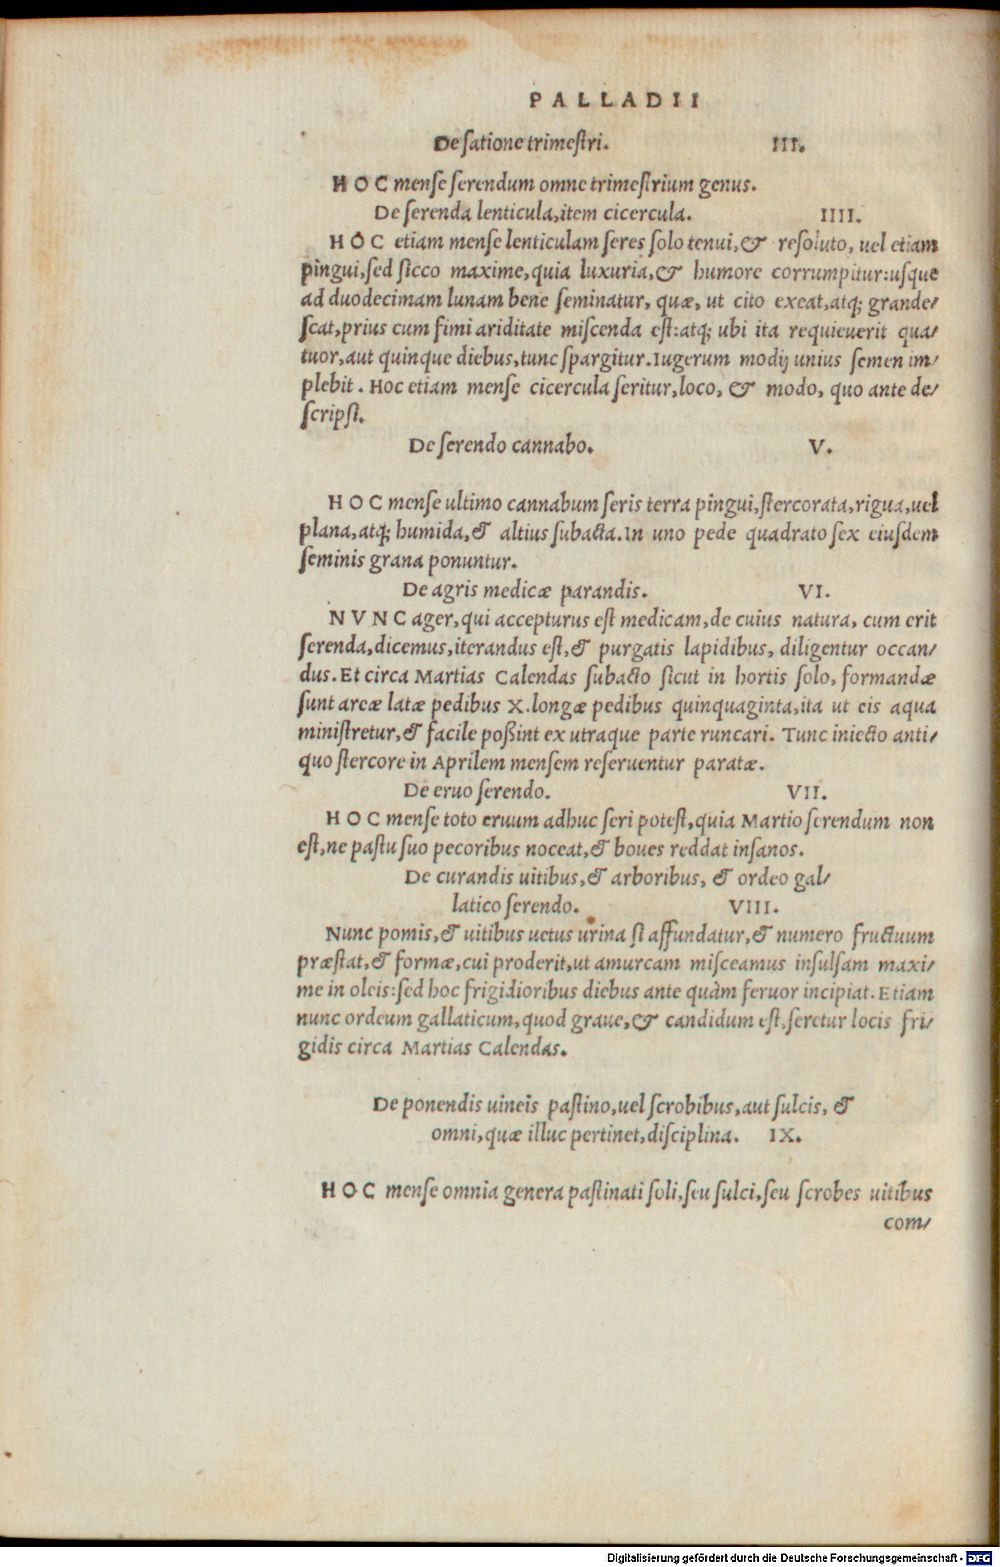 PALLADII
De ſatione trimeſtri. III.
HOC menſe ſerendum omne trimeſtrium genus.
De ſerenda lenticula, item cicercula. IIII.
HOC etiam menſe lenticulam ſeres ſolo tenui, & reſoluto, uel etiam
pingui, ſed ſicco maxime, quia luxuria, & humore corrumpitur: uſque
ad duodecimam lunam bene ſeminatur, quæ, ut cito exeat, atq; grande/
ſcat, prius cum fimi ariditate miſcenda eſt: atq; ubi ita requieuerit qua/
tuor, aut quinque diebus, tunc ſpargitur. Iugerum modij unius ſemen im/
plebit. Hoc etiam menſe cicercula ſeritur, loco, & modo, quo ante de/
ſcripſi.
De ſerendo cannabo. V.
HOC menſe ultimo cannabum ſeris terra pingui, ſtercorata, rigua, uel
plana, atq; humida, & altius ſubacta. In uno pede quadrato ſex eiuſdem
ſeminis grana ponuntur.
De agris medicæ parandis. VI.
NVNC ager, qui accepturus eſt medicam, de cuius natura, cum erit
ſerenda, dicemus, iterandus eſt, & purgatis lapidibus, diligentur occan/
dus. Et circa Martias Calendas ſubacto ſicut in hortis ſolo, formandæ
ſunt arcæ latæ pedibus X. longæ pedibus quinquaginta, ita ut eis aqua
miniſtretur, & facile poßint ex utraque parte runcari. Tunc iniecto anti/
quo ſtercore in Aprilem menſem reſeruentur paratæ.
De eruo ſerendo. VII.
HOC menſe toto eruum adhuc ſeri poteſt, quia Martio ſerendum non
eſt, ne paſtu ſuo pecoribus noceat, & boues reddat inſanos.
De curandis uitibus, & arboribus, & ordeo gal/
latico ſerendo. VIII.
Nunc pomis, & uitibus uetus urina ſi affundatur, & numero fructuum
præſtat, & formæ, cui proderit, ut amurcam miſceamus inſulſam maxi/
me in oleis: ſed hoc frigidioribus diebus ante quàm feruor incipiat. Etiam
nunc ordeum gallaticum, quod graue, & candidum eſt, ſeretur locis fri/
gidis circa Martias Calendas.
De ponendis uineis paſtino, uel ſcrobibus, aut ſulcis, &
omni, quæ illuc pertinet, diſciplina. IX.
HOC menſe omnia genera paſtinati ſoli, ſeu ſulci, ſeu ſcrobes uitibus
com/
Digitalisierung gefördert durch die Deutsche Forschungsgemeinschaft - DFG